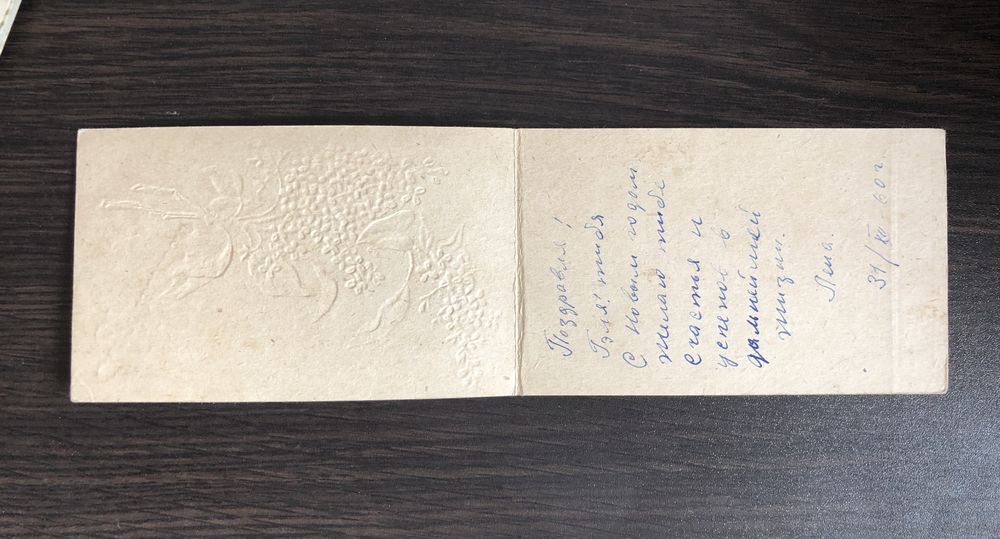 Поздравля!
Гэля! тибя
С новым годом,
желаю тибе
счастья и
успехов в
дальнейшей
жизни.
Лена.
31/XII-60 г.